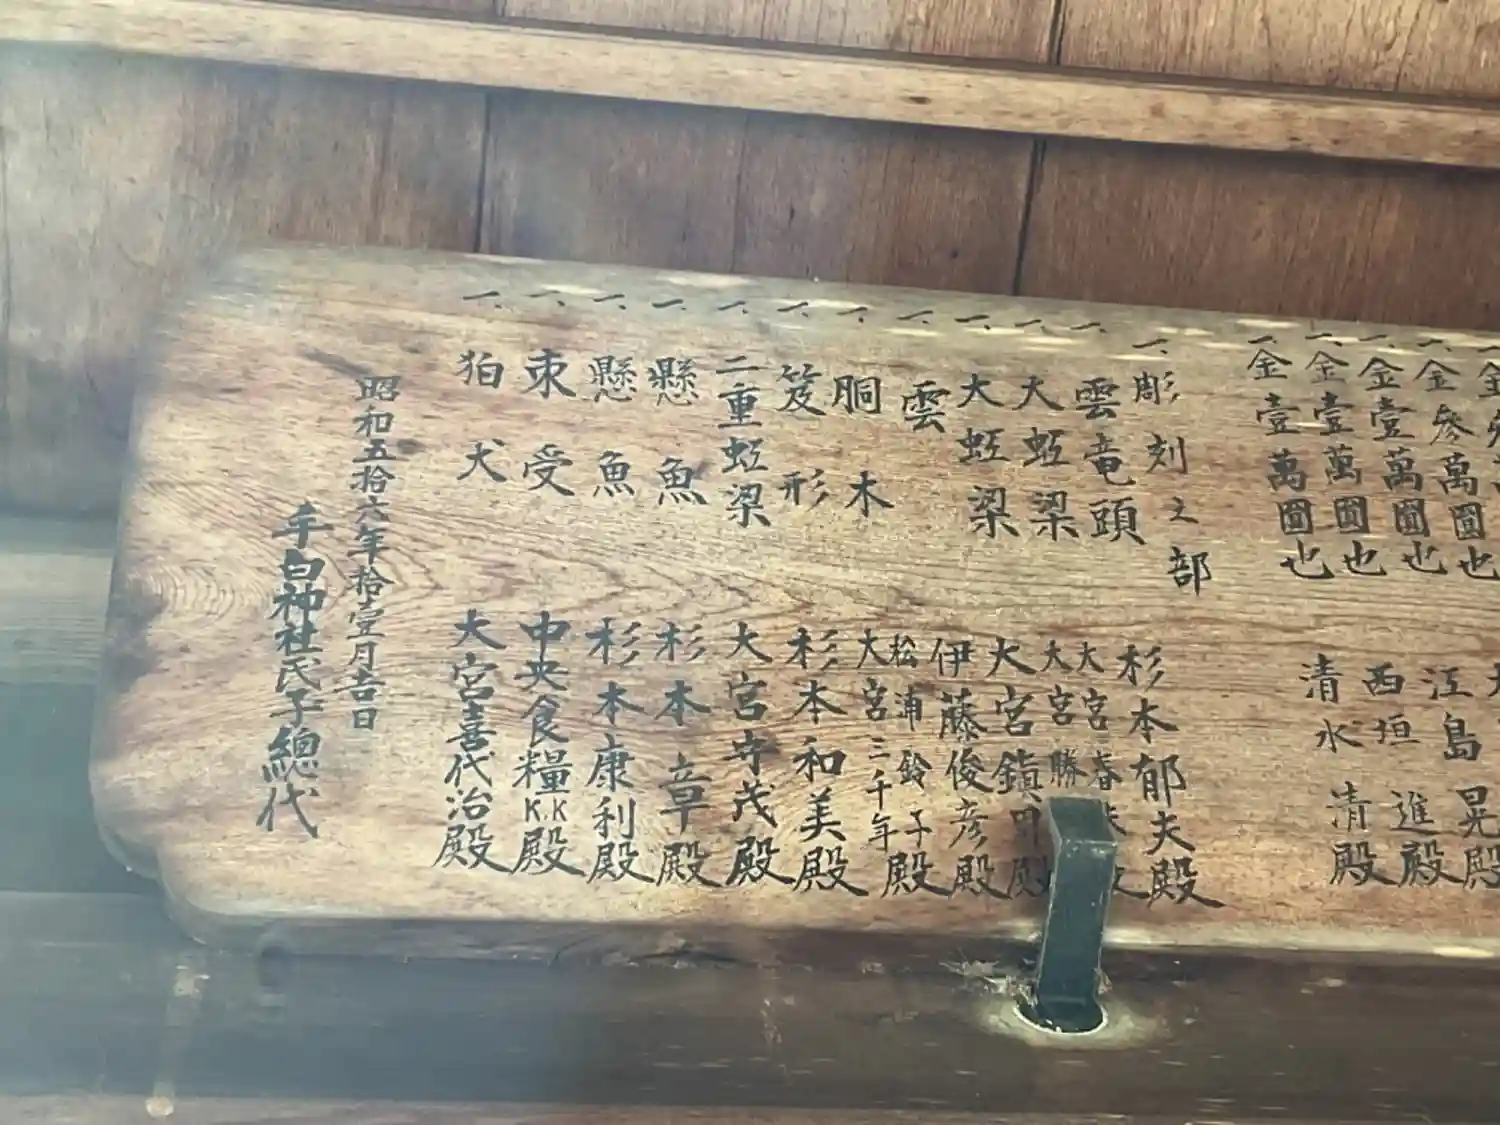 金參萬圓也
一、金壹萬圓也 江島 晃殿
一、金壹萬圓也 西垣 進殿
一、金壹萬圓也 清水 清殿
一、彫刻之部
一、雲竜頭 杉本郁夫殿
一、大虹梁 大宮春
大宮勝
一、大虹梁 大宮鎮 殿
一、雲 伊藤俊彦殿
一、胴木 松浦鈴子
大宮三千年殿
一、笈形 杉本和美殿
一、二重虹梁 大宮守茂殿
一、懸魚 杉本章殿
一、懸魚 杉本康利殿
一、束受 中央食糧K.K殿
一、狛犬 大宮喜代治殿
昭和五拾六年拾壹月吉日
手白神社氏子總代